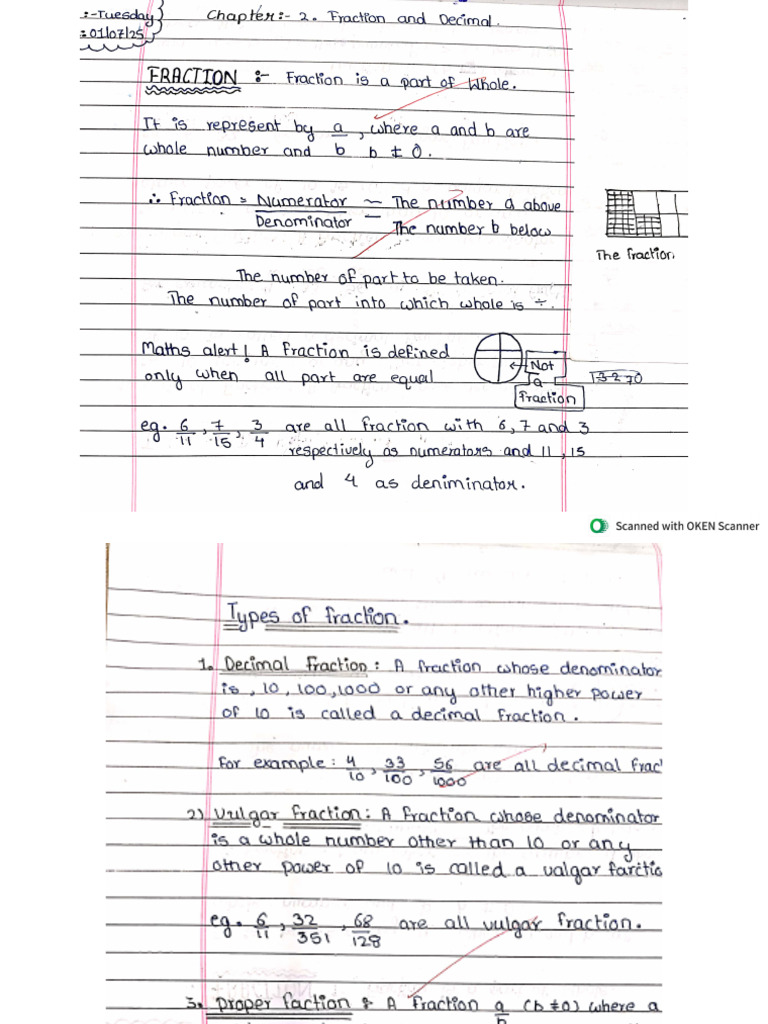 :-Tuesday
:01/07/25
Chapter:- 2. Fraction and Decimal.
FRACTION :- Fraction is a part of Whole.
It is represent by a/b, where a and b are
whole number and b ≠ 0.
∴ Fraction = Numerator ~ The number a above
Denominator — The number b below
The fraction
The number of part to be taken.
The number of part into which whole is ÷.
Maths alert! A fraction is defined
only when all part are equal
Not
a
fraction
eg. 6/11, 7/15, 3/4 are all fraction with 6, 7 and 3
respectively as numerators and 11, 15
and 4 as deniminator.
Scanned with OKEN Scanner
Types of fraction.
1. Decimal Fraction: A fraction whose denominator
is, 10, 100, 1000 or any other higher power
of 10 is called a decimal fraction.
For example: 4/10, 33/100, 56/1000 are all decimal frac
2) Vulgar fraction: A fraction whose denominator
is a whole number other than 10 or any
other power of 10 is called a valgar farctio
eg. 6/11, 32/351, 68/128 are all vulgar fraction.
3. Proper faction :- A fraction a/b (b ≠ 0) where a